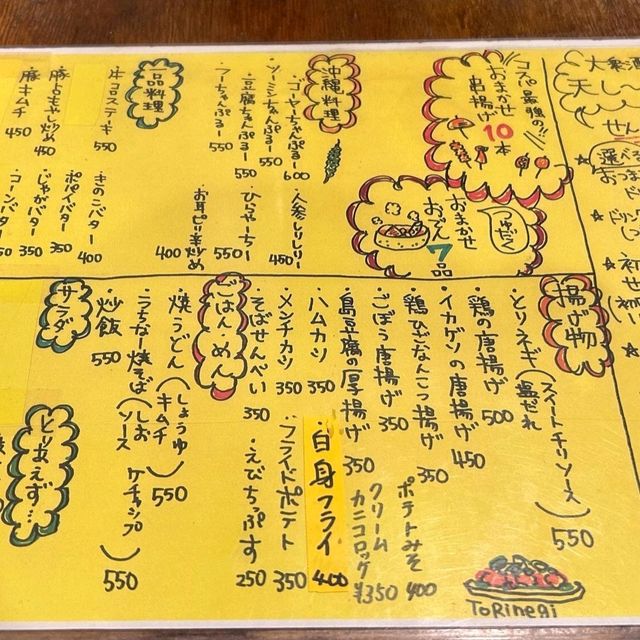 大衆酒
天し
せん
選べる
おつま
ド
★ドリン
1つ
★初
せ
初い
★
コスパ最強の!!
おまかせ
串揚げ10本
つゆだく
おまかせ
おでん
7品
沖縄料理
・ゴーヤーちゃんぷるー 600
・ソーミンちゃんぷるー 550
・豆腐ちゃんぷるー 550
・フーちゃんぷるー
・人参しりしりー 450
・ひらやーちー 550
・お耳ピリ辛炒め 400
一品料理
・牛コロステーキ 550
・豚もやし炒め 450
・豚キムチ 450
・きのこバター 400
・ポパイバター 350
・じゃがバター 350
・コーンバター 350
揚げ物
・とりネギ(スイートチリソース 塩だれ) 550
・鶏の唐揚げ 500
・イカゲソの唐揚げ 450
・鶏ひざなんこつ揚げ 350
・ごぼう唐揚げ 350
・島豆腐の厚揚げ 350
・ハムカツ 350
・メンチカツ 350
・そばせんべい 350
・ポテトみそ 400
・クリームカニコロッケ ¥350
・白身フライ 400
・フライドポテト 350
・えびちっぷす 250
ToRinegi
ごはん・めん
・焼うどん(しょうゆ キムチ) 550
・うちなー焼そば(しお ソース ケチャップ) 550
・炒飯 550
サラダ
とりあえず…